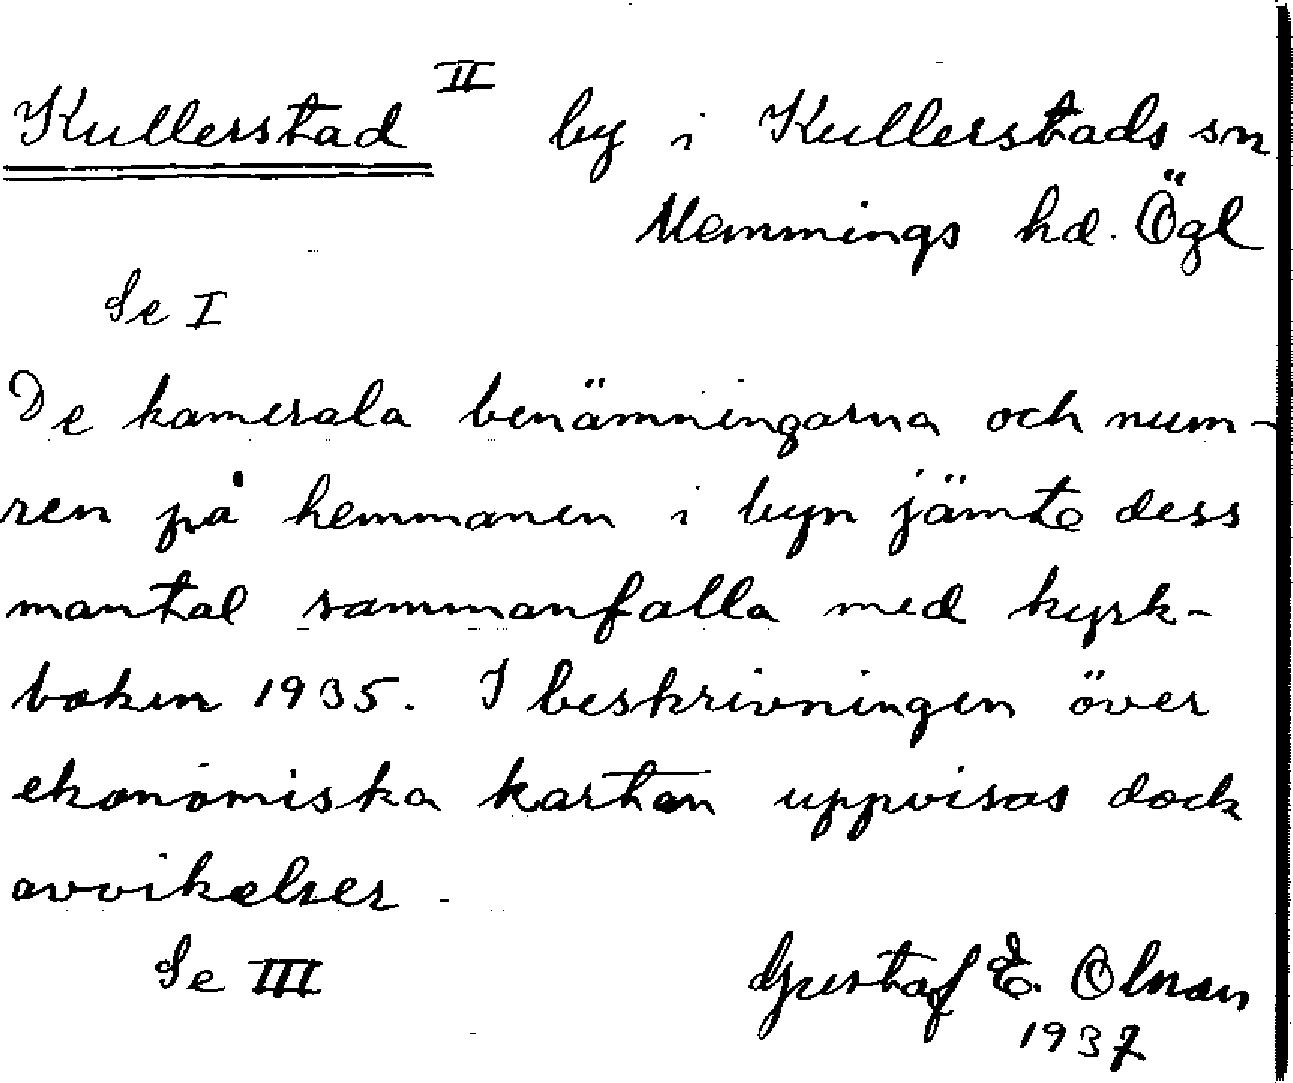 Kullerstad II by i Kullerstads sn
Memmings hd. Ögl
Se I
De kamerala benämningarna och num-
ren på hemmanen i byn jämte dess
mantal sammanfalla med kyrk-
boken 1935. I beskrivningen över
ekonomiska kartan uppvisas dock
avvikelser.
Se III Gustaf E. Olman
1937